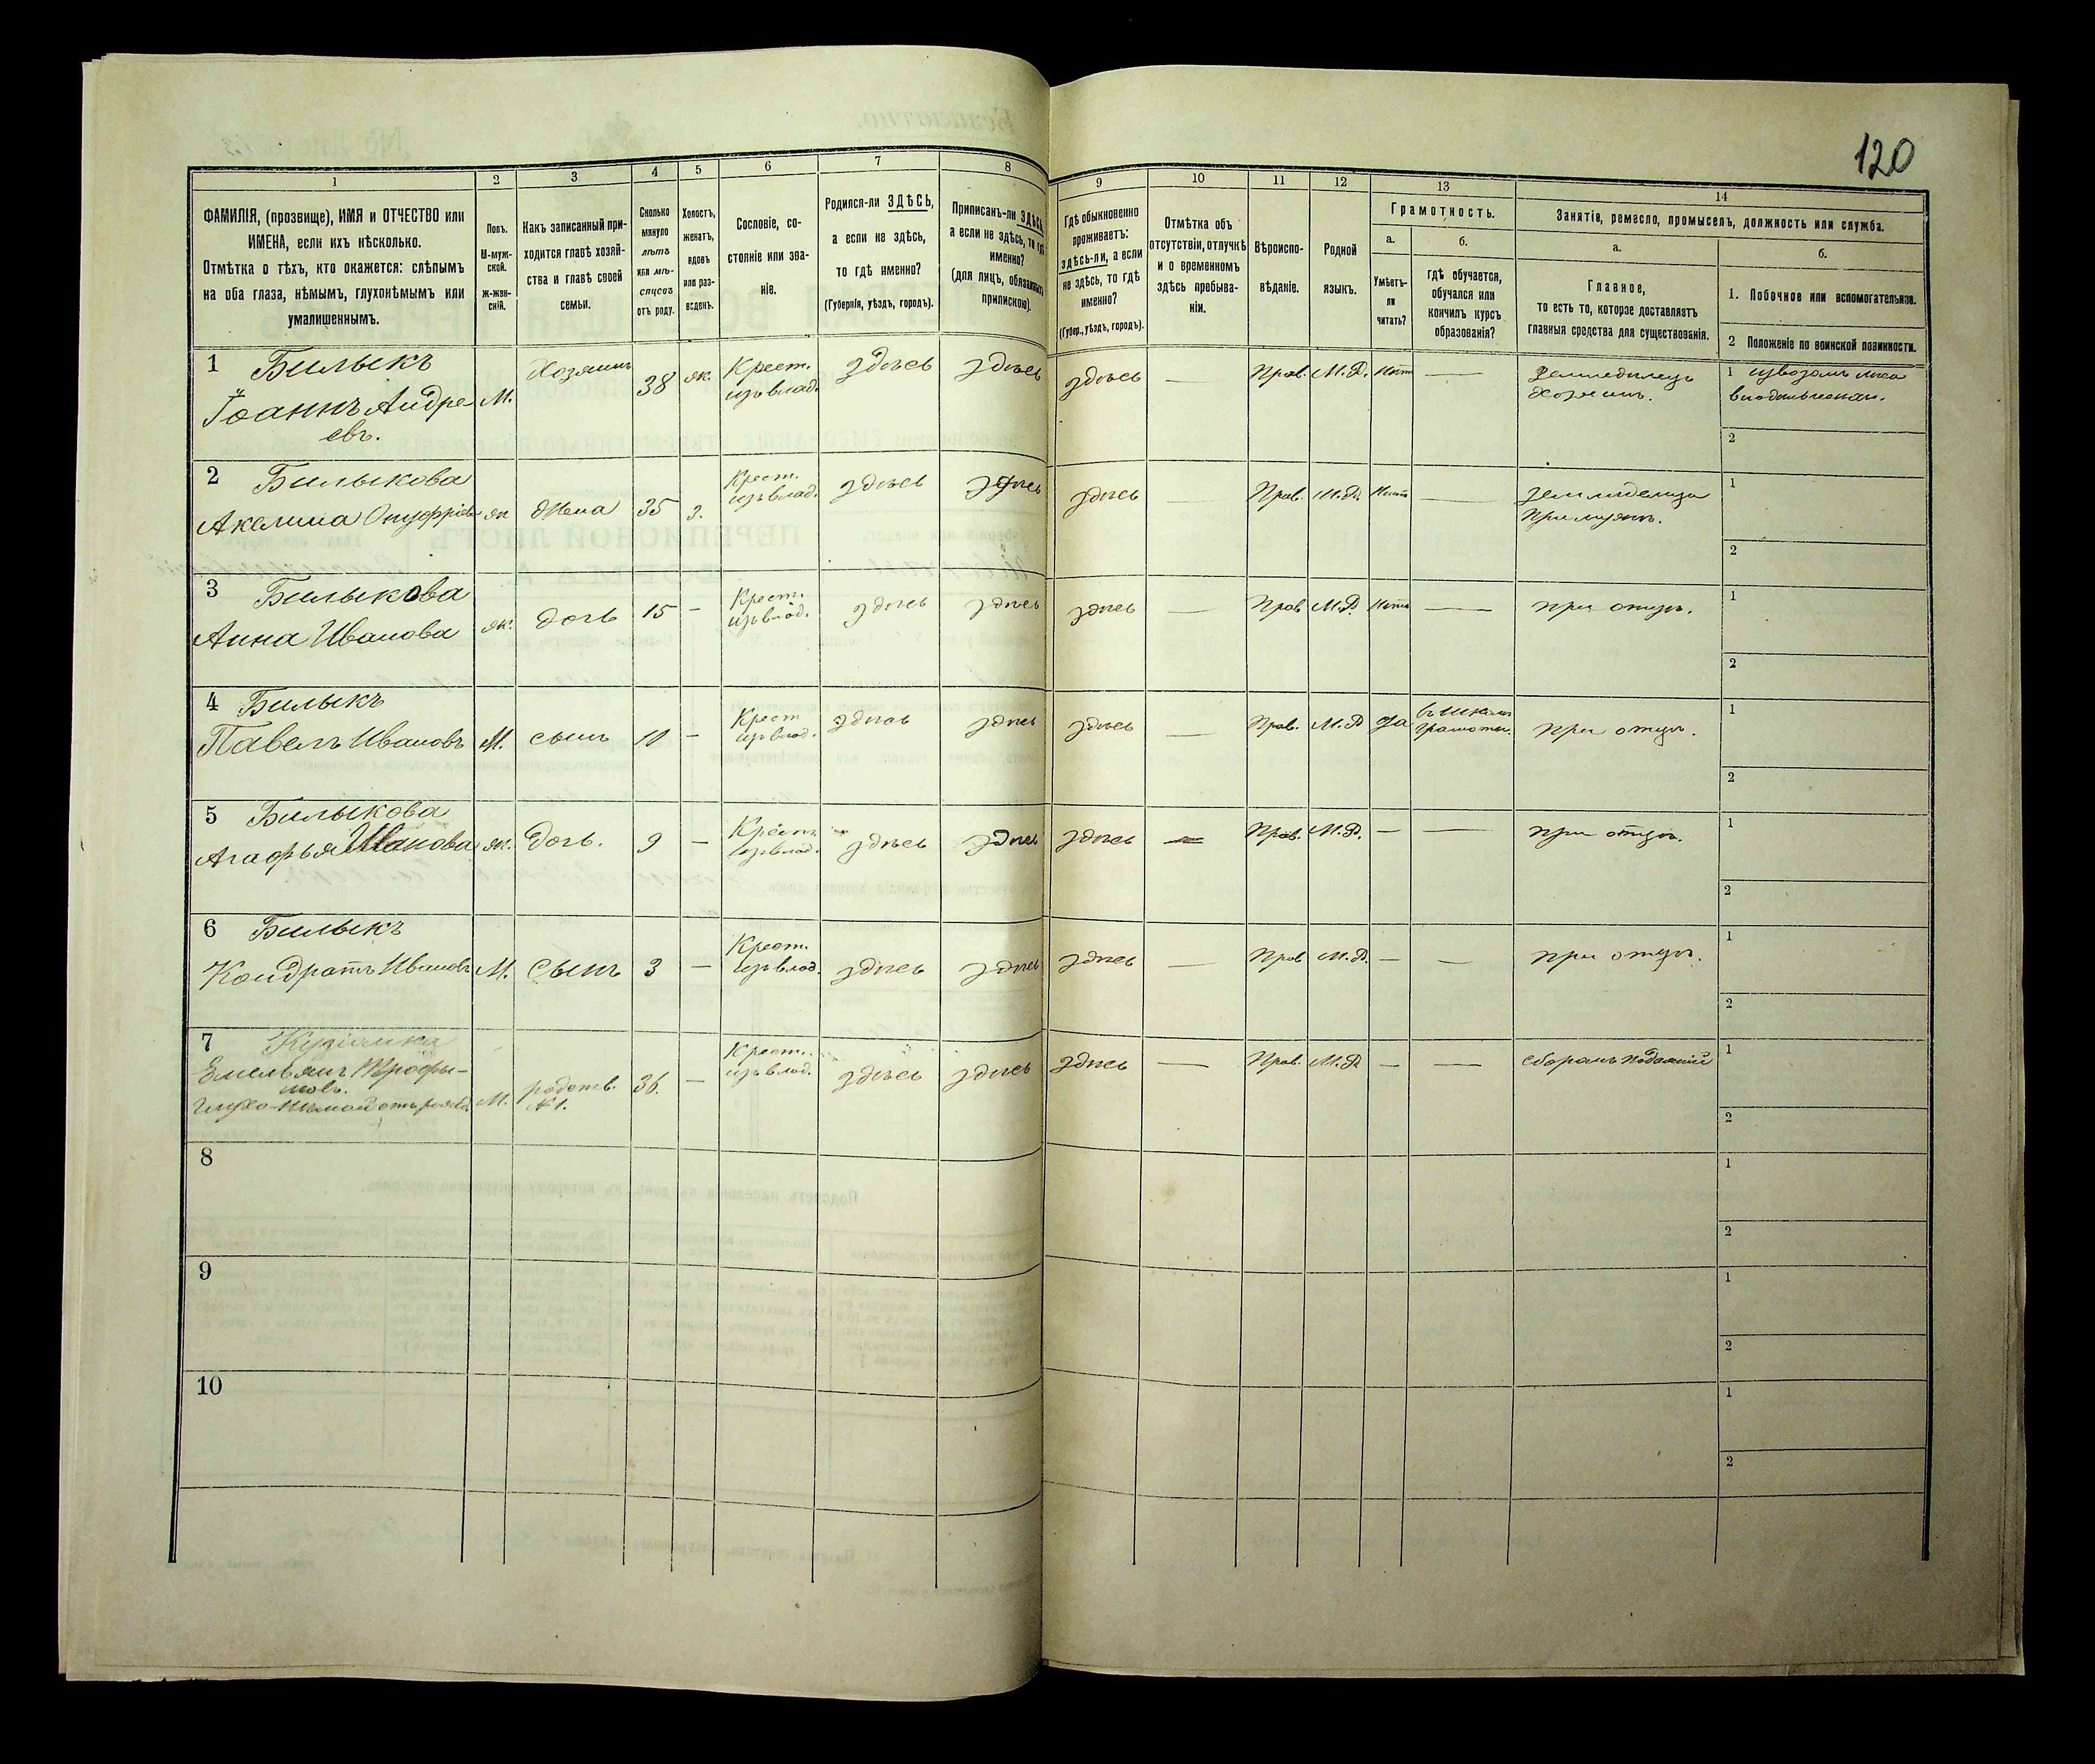 120
1
2
3
4
5
6
7
8
9
10
11
12
13
14
ФАМИЛІЯ, (прозвище), ИМЯ и ОТЧЕСТВО или
ИМЕНА, если ихъ нѣсколько.
Отмѣтка о тѣхъ, кто окажется: слѣпымъ
на оба глаза, нѣмымъ, глухонѣмымъ или
умалишеннымъ.
Полъ.
М-муж-
ской.
ж-жен-
скій.
Какъ записанный при-
ходится главѣ хозяй-
ства и главѣ своей
семьи.
Сколько
минуло
лѣтъ
или мѣ-
сяцевъ
отъ роду.
Холостъ,
женатъ,
вдовъ
или раз-
веденъ.
Сословіе, со-
стояніе или зва-
ніе.
Родился-ли ЗДѢСЬ,
а если не здѣсь,
то гдѣ именно?
(Губернія, уѣздъ, городъ).
Приписанъ-ли ЗДѢСЬ,
а если не здѣсь, то гдѣ
именно?
(для лицъ, обязанныхъ
припискою).
Гдѣ обыкновенно
проживаетъ:
здѣсь-ли, а если
не здѣсь, то гдѣ
именно?
(Губер., уѣздъ, городъ).
Отмѣтка объ
отсутствіи, отлучкѣ
и о временномъ
здѣсь пребыва-
ніи.
Вѣроиспо-
вѣданіе.
Родной
языкъ.
Грамотность.
а.
Умѣетъ-
ли
читать?
б.
гдѣ обучается,
обучался или
кончилъ курсъ
образованія?
Занятіе, ремесло, промыселъ, должность или служба.
а.
Главное,
то есть то, которое доставляетъ
главныя средства для существованія.
б.
1. Побочное или вспомогательное.
2 Положеніе по воинской повинности.
1 Билыкъ
Іоаннъ Андре
евъ.
М.
Хозяинъ
38
ж.
Крест.
изъ влад.
здѣсь
здѣсь
здѣсь
—
Прав.
М.Р.
Нѣтъ
—
Земледѣлецъ
Хозяинъ.
1 извозомъ лѣса
2
2 Билыкова
Акелина Онуфріева
ж
Жена
35
з.
Крест.
изъ влад.
здѣсь
здѣсь
здѣсь
—
Прав.
М.Р.
Нѣтъ
—
1
2
3 Билыкова
Анна Иванова
ж.
дочь
15
—
Крест.
изъ влад.
здѣсь
здѣсь
здѣсь
—
Прав
М.Р.
Нѣтъ
—
при отцѣ.
1
2
4 Билыкъ
Павелъ Ивановъ
М.
сынъ
11
—
Крест
изъ влад.
здѣсь
здѣсь
здѣсь
—
Прав.
М.Р
да
въ школѣ
грамоты.
при отцѣ.
1
2
5 Билыкова
Агафья Иванова
ж.
Дочь.
9
—
Крест.
изъ влад.
здѣсь
здѣсь
здѣсь
—
Прав.
М.Р.
—
—
при отцѣ.
1
2
6 Билыкъ
Кондратъ Ивановъ
М.
Сынъ
3
—
Крест.
изъ влад.
здѣсь
здѣсь
здѣсь
—
Прав
М.Р.
—
—
при отцѣ.
1
2
7
Емельянъ Трофи-
мовъ.
Глухо-нѣмой отъ рожд.
М.
родств.
№1.
36.
—
Крест.
изъ влад.
здѣсь
здѣсь
здѣсь
—
Прав.
М.Р.
—
—
сборомъ подаяній
1
2
8
1
2
9
1
2
10
1
2